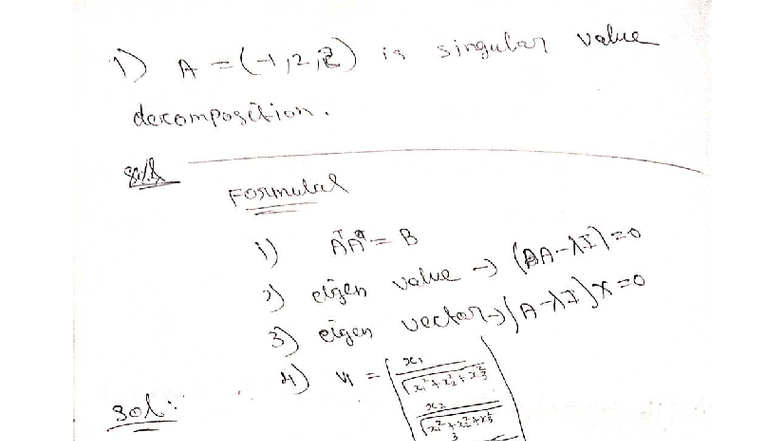 1) A = (-1, 2, 2) is singular value
decomposition.
Formulas
1) AᵀA = B
2) eigen value → (AA-λI)=0
3) eigen vector → (A-λI)X=0
4) v₁ = x₁ / √x₁²+x₂²+x₃²
x₂ / √x₁²+x₂²+x₃²
Sol: